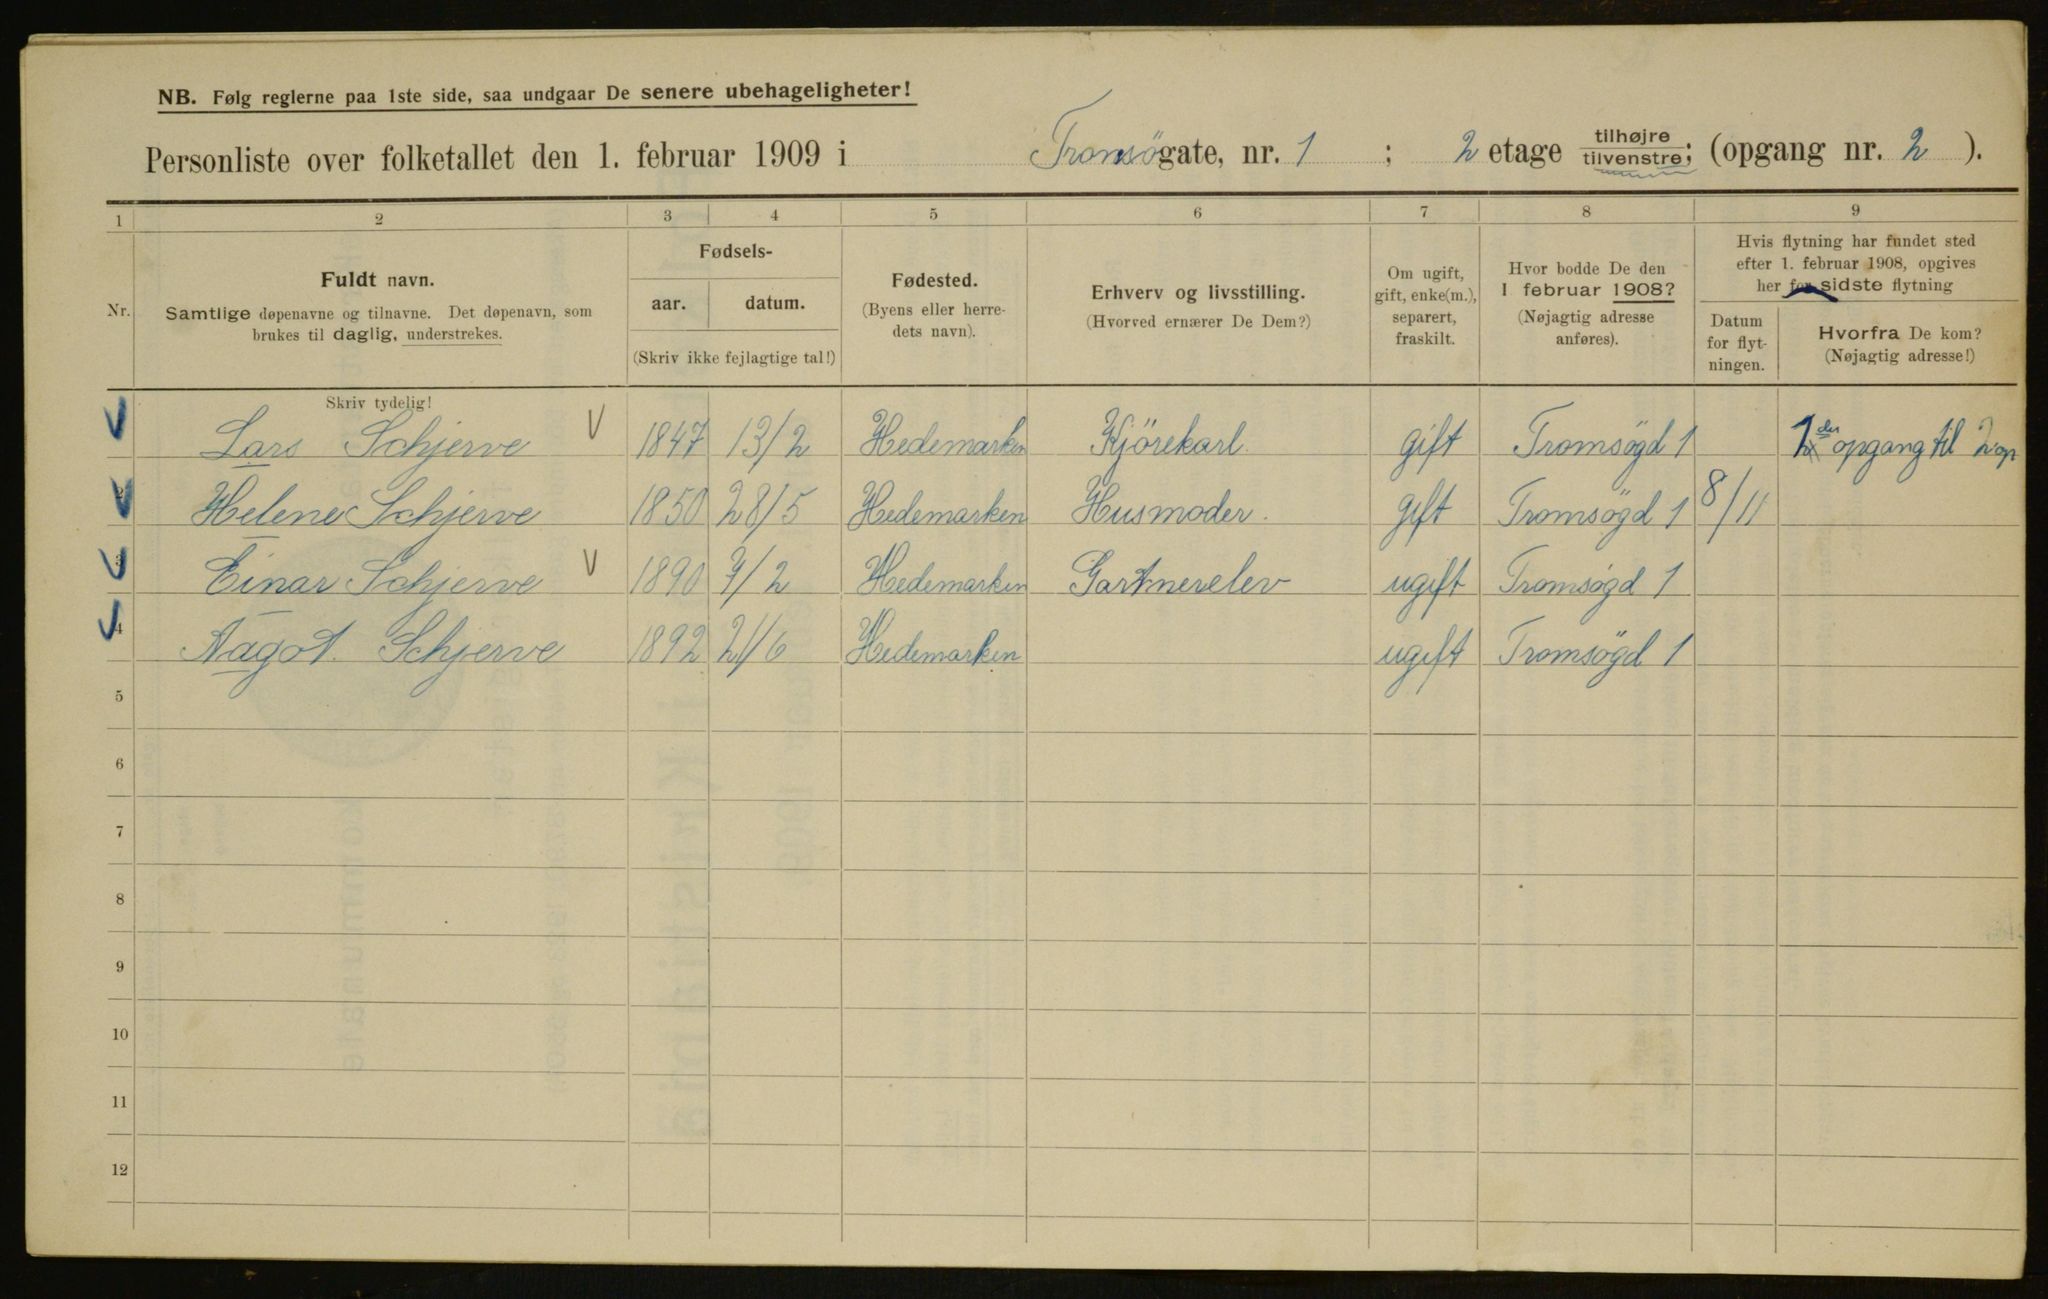 NB. Følg reglerne paa 1ste side, saa undgaar De senere ubehageligheter!
Personliste over folketallet den 1. februar 1909 i Tromsøgate, nr. 1 ; 2 etage tilhøjre tilvenstre; (opgang nr. 2 ).
1 2 3 4 5 6 7 8 9
Nr.
Fuldt navn.
Samtlige døpenavne og tilnavne. Det døpenavn, som
brukes til daglig, understrekes.
Fødsels-
aar. datum.
(Skriv ikke fejlagtige tal!)
Fødested.
(Byens eller herre-
dets navn).
Erhverv og livsstilling.
(Hvorved ernærer De Dem?)
Om ugift,
gift, enke(m.),
separert,
fraskilt.
Hvor bodde De den
1 februar 1908?
(Nøjagtig adresse
anføres).
Hvis flytning har fundet sted
efter 1. februar 1908, opgives
her for sidste flytning
Datum
for flyt-
ningen.
Hvorfra De kom?
(Nøjagtig adresse!)
Skriv tydelig!
Lars Schjerve V 1847 13/2 Hedemarken Kjörekarl. gift Tromsögd 1 1 der opgang til 2 op
2 Helene Schjerve 1850 28/5 Hedemarken Husmoder. gift Tromsögd 1 8/11
3 Einar Schjerve V 1890 7/2 Hedemarken Gartnerelev ugift Tromsögd 1
4 Aagot. Schjerve 1892 21/6 Hedemarken ugift Tromsögd 1
5
6
7
8
9
10
11
12